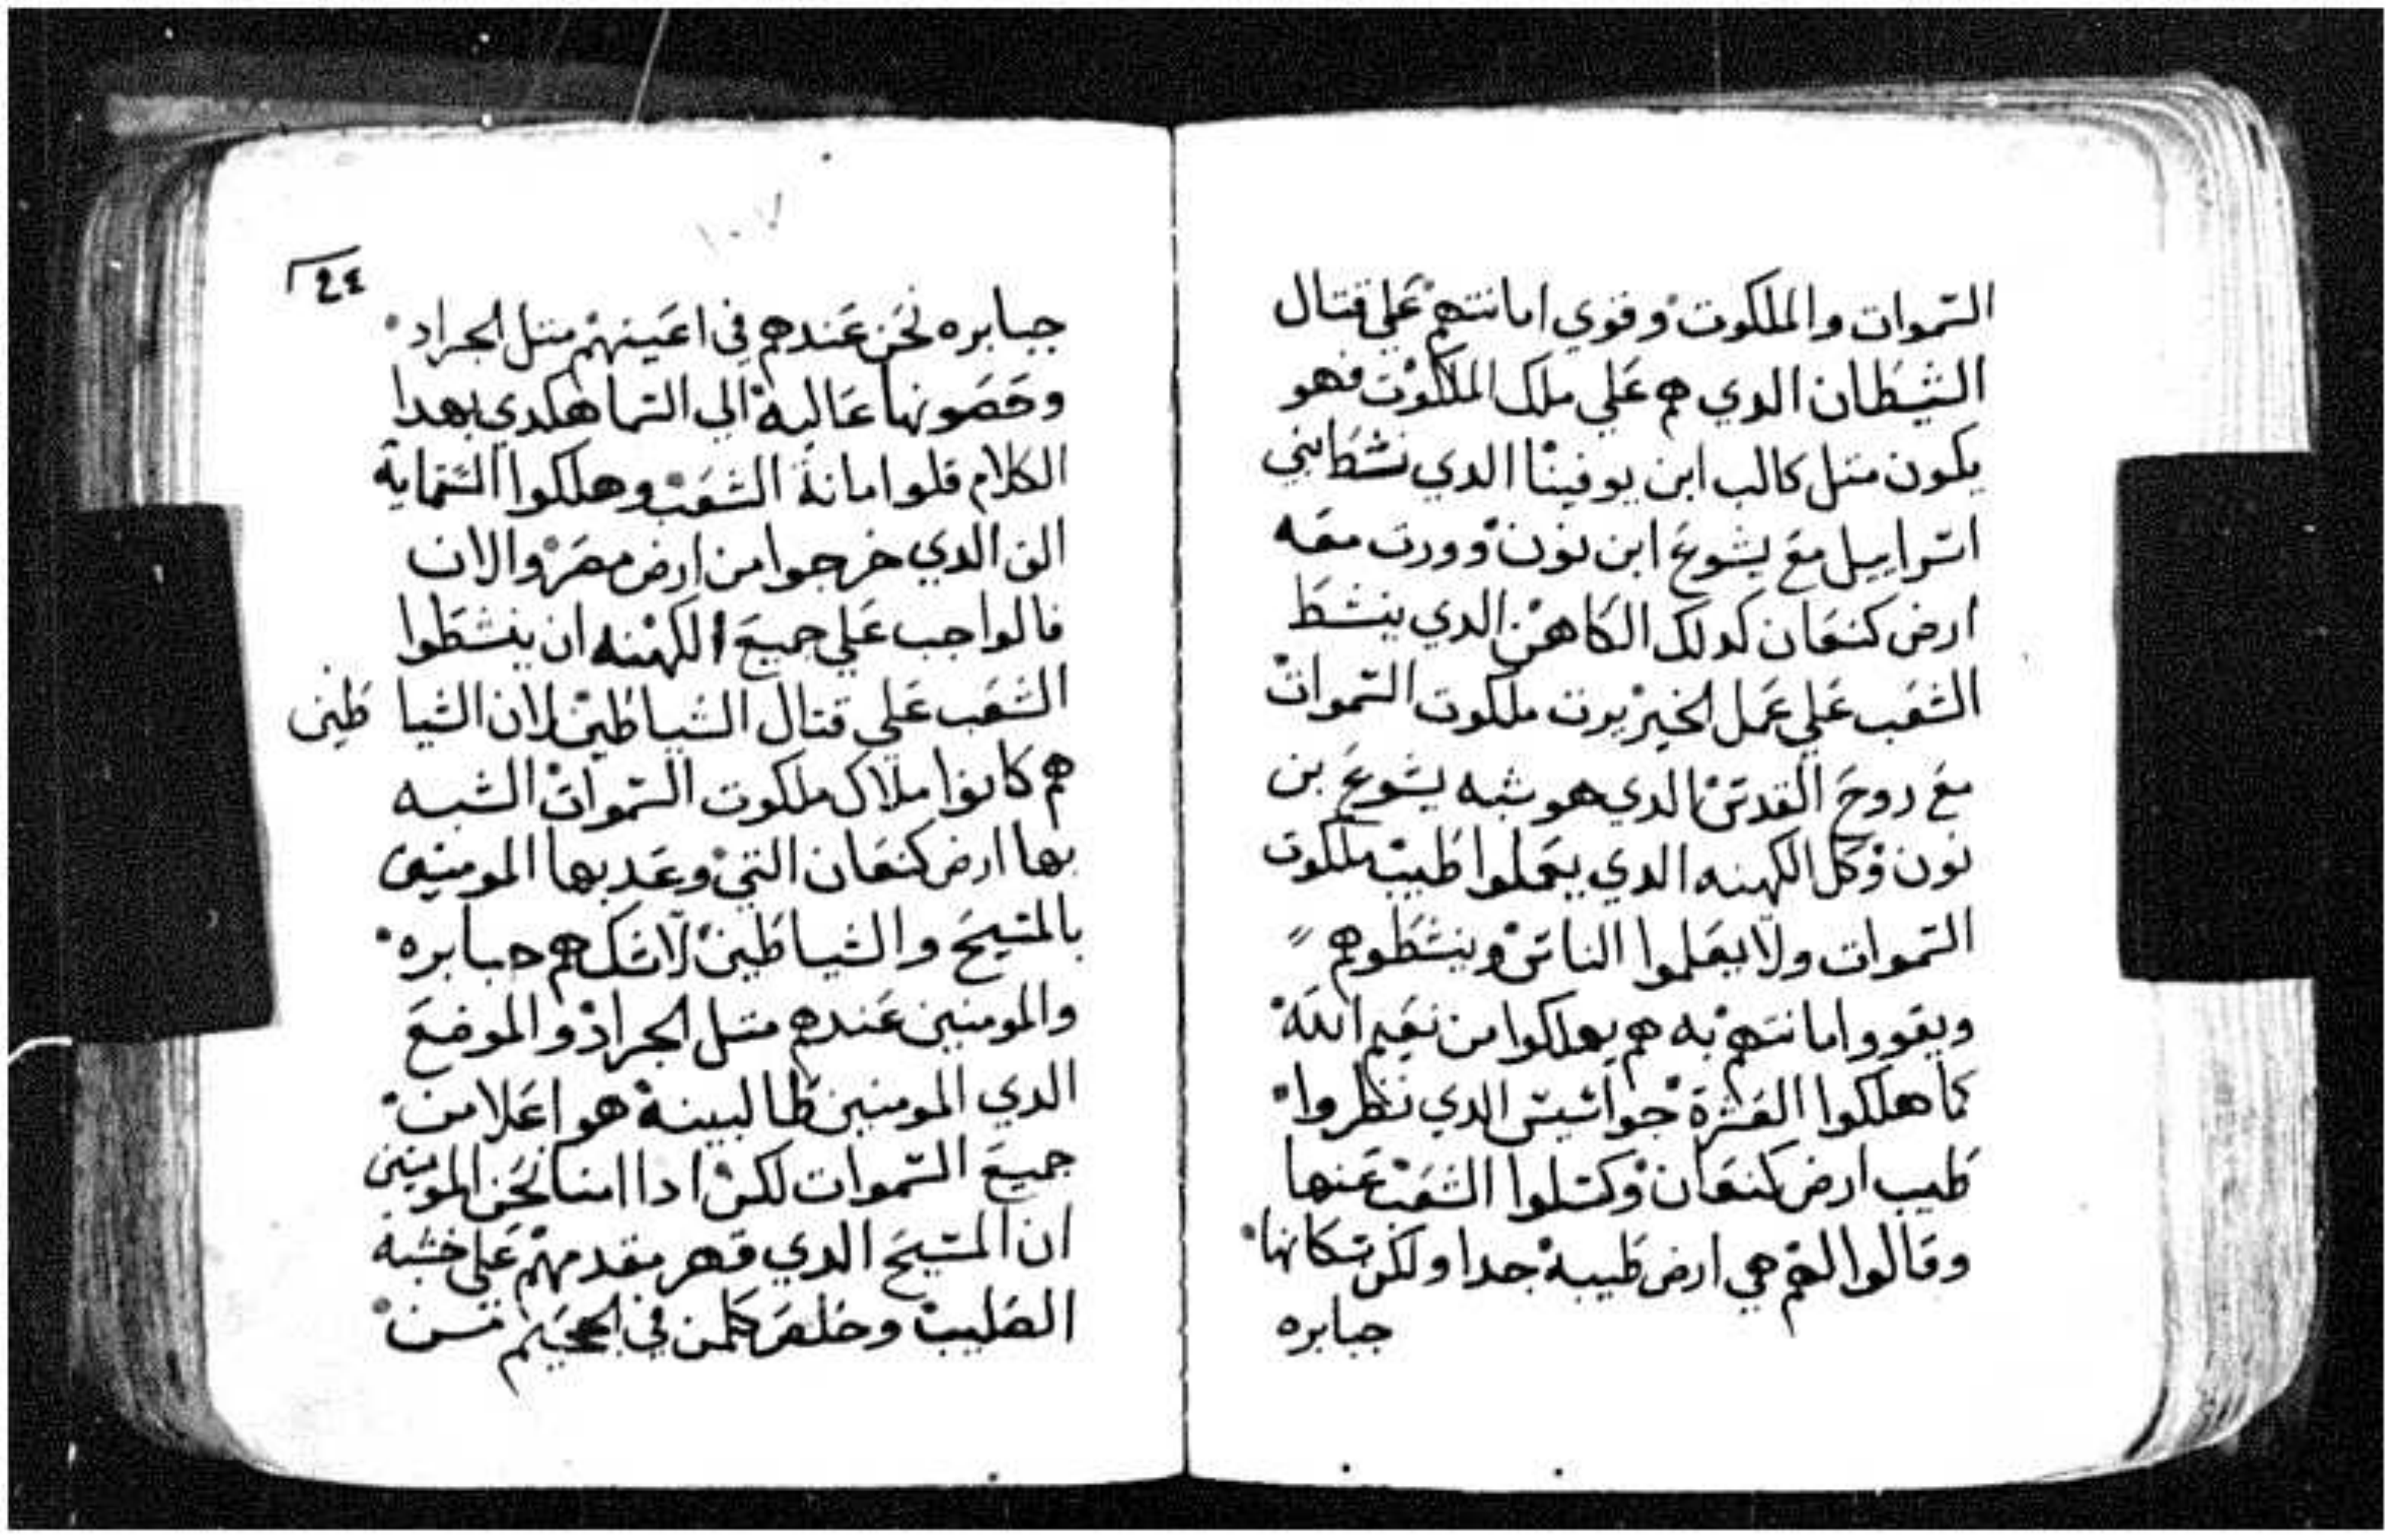 السموات والملكوت وقوي امانتهم علي قتال
الشيطان الدي هم علي ملك الملكوت فهو
يكون متل كالب ابن يوفينا الدي نشط بني
اسراييل مع يشوع ابن نون وورت معه
ارض كنعان كدلك الكاهن الدي ينشط
الشعب علي عمل الخير يرت ملكوت السموات
مع روح القدس الدي هو شبه يشوع بن
نون وكل الكهنه الدي يعملوا طيب ملكوت
السموات ولا يعلموا الناس وينشطوهم
ويقووا امانتهم به هم يهلكوا من نعيم الله
كما هلكوا العشرة جواسيس الدي نظروا
طيب ارض كنعان وكسلوا الشعب عنها
وقالوا لهم هي ارض طيبة جدا ولكن سكانها
جبابره
٢٤
جبابره نحن عندهم في اعينهم متل الجراد
وحصونها عالية الي السما هكدي بهدا
الكلام قلوا امانة الشعب وهلكوا الستماية
الف الدي خرجوا من ارض مصر والان
فالواجب علي جميع الكهنه ان ينشطوا
الشعب علي قتال الشياطين لان الشياطين
هم كانوا ملاك ملكوت السموات الشبه
بها ارض كنعان التي وعد بها المومنين
بالمسيح والشياطين لاشك هم جبابره
والمومنين عندهم متل الجراد والموضع
الدي المومنين طالبينة هو اعلا من
جميع السموات لكن ادا امنا نحن المومنين
ان المسيح الدي قهر مقدمهم علي خشبة
الصليب وخلص كلمن في الجحيم من